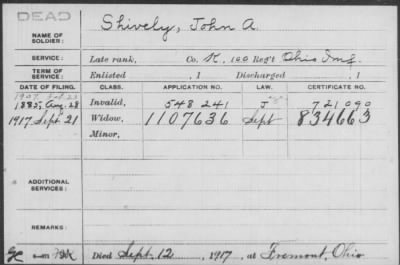 DEAD
NAME OF SOLDIER: Shively, John A.
SERVICE: Late rank, Co. K, 100 Reg't Ohio Inf.
TERM OF SERVICE: Enlisted , 1 Discharged , 1
DATE OF FILING. CLASS. APPLICATION NO. LAW. CERTIFICATE NO.
1907
1885, Aug. 28 Invalid, 548241 J 721090
1917 Sept 21 Widow, 1107636 Sept 834663
Minor,
ADDITIONAL SERVICES:
REMARKS:
Died Sept. 12, 1917, at Fremont, Ohio